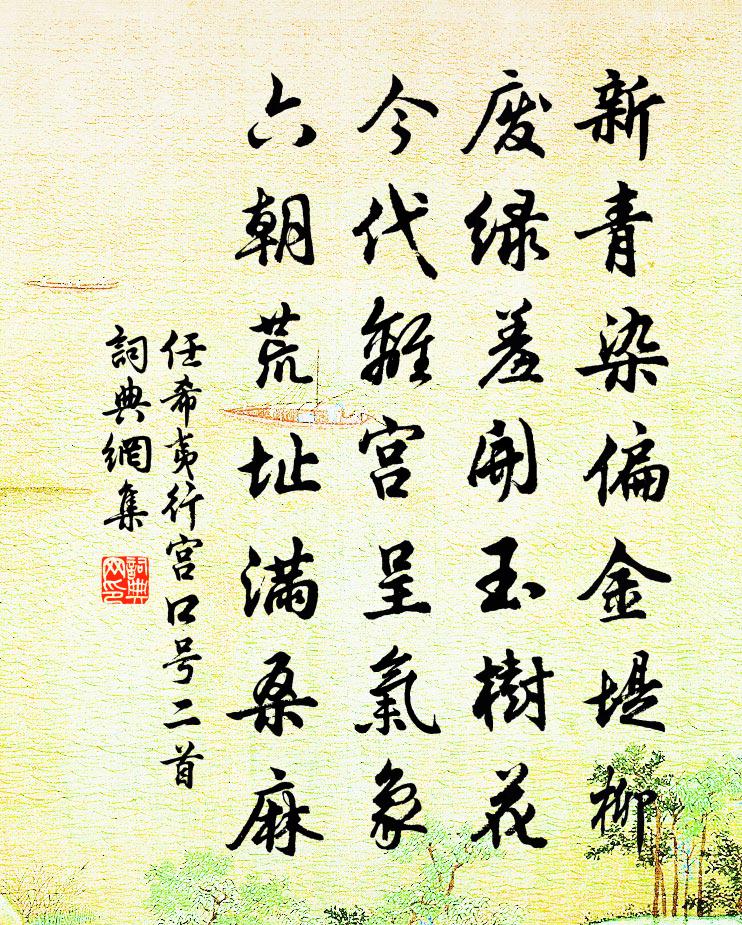 新青染偏金堤柳
废绿羞开玉樹花
今代離宫呈氣象
六朝荒址满桑麻
任希夷行宫口号二首
詞典網集
詞典网印